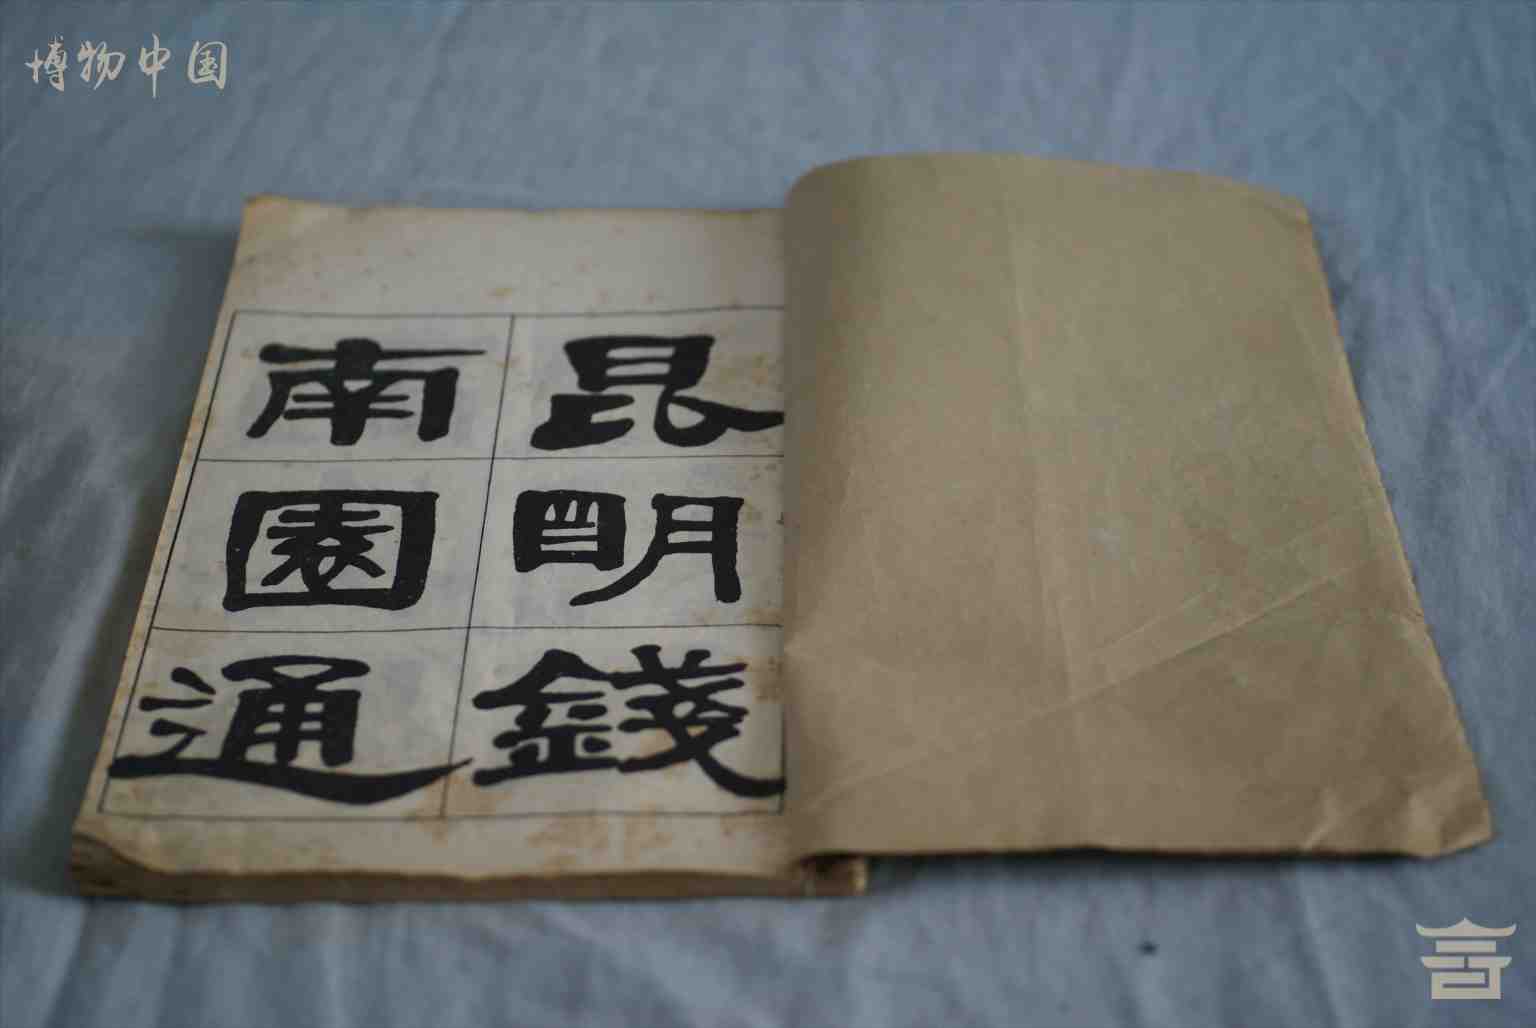 博物中国
昆明錢
南園通